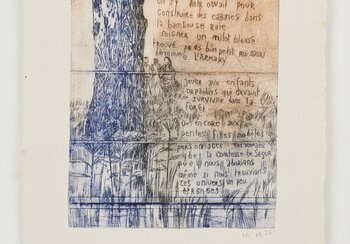 on s'y retrouvait pour
construire des cabanes dans
la bambouseraie
soigner un mulot blessé
trouvé près d'un petit ruisseau
dénommé L'ARMARY
jouer aux enfants
orphelins qui devaient
survivre dans la
forêt
ou encore aux
petites filles modèles
personnages des romans
de la comtesse de Ségur
que nous adorions
même si nous trouvions
ces univers un peu
étranges